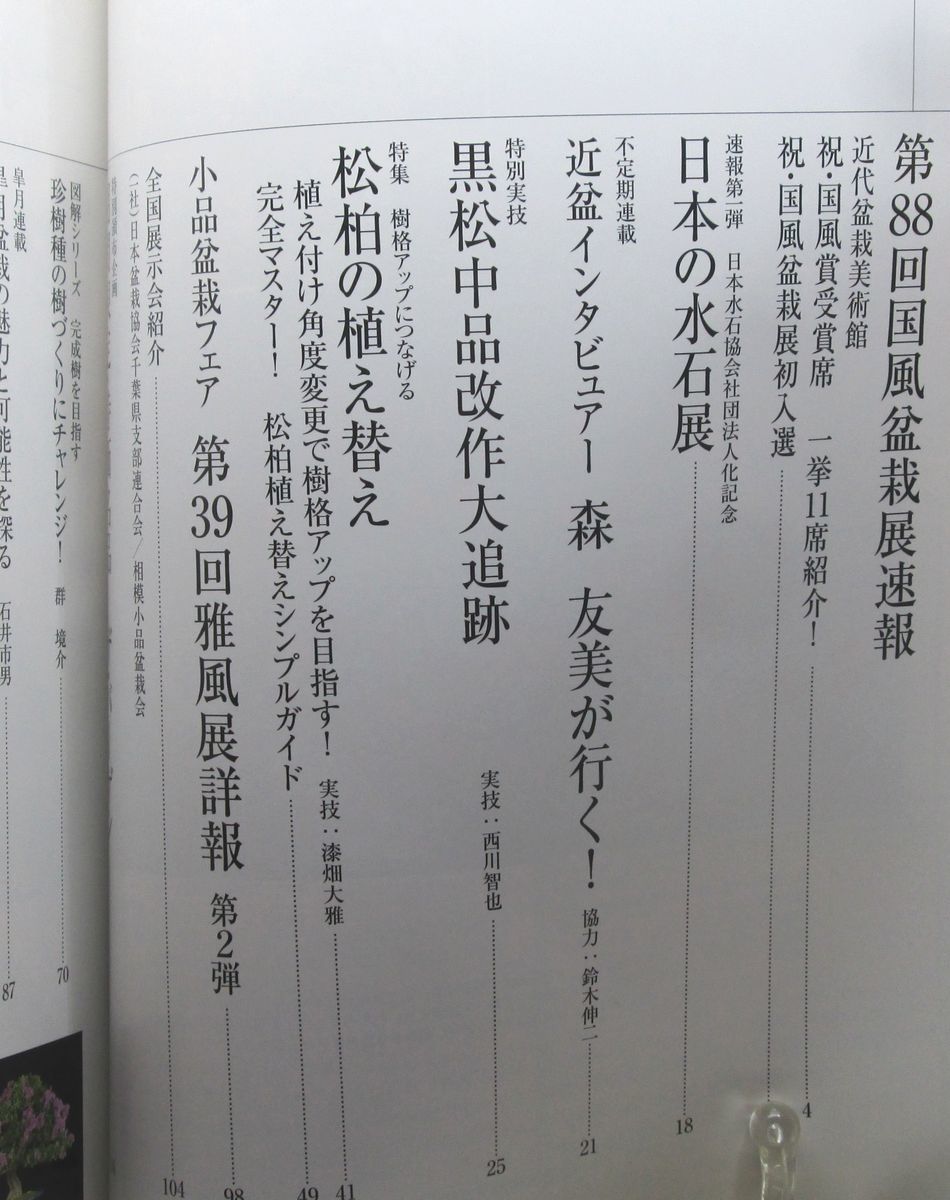 第88回国風盆栽展速報
近代盆栽美術館
祝・国風賞受賞席 一挙11席紹介! 4
祝・国風盆栽展初入選
速報第一弾 日本水石協会社団法人化記念
日本の水石展 18
不定期連載
近盆インタビュアー 森 友美が行く! 協力:鈴木伸二 21
特別実技
黒松中品改作大追跡 実技:西川智也 25
特集 樹格アップにつなげる
松柏の植え替え
植え付け角度変更で樹格アップを目指す! 実技:漆畑大雅 41
完全マスター! 松柏植え替えシンプルガイド 49
小品盆栽フェア 第39回雅風展詳報 第2弾 98
全国展示会紹介 104
(一社)日本盆栽協会千葉県支部連合会/相模小品盆栽会
図解シリーズ 完成樹を目指す
珍樹種の樹づくりにチャレンジ! 群 境介 70
皐月連載
皐月盆栽の魅力と可能性を探る 石井市男 87